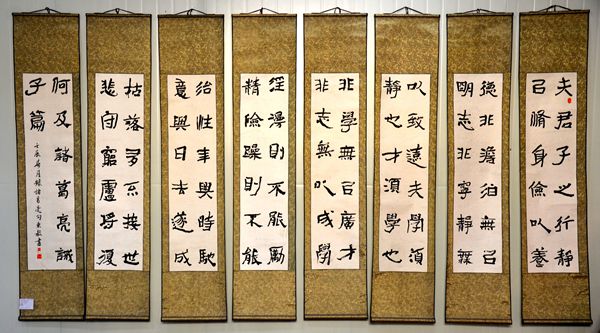 夫君子之行静
以脩身儉以養
德非澹泊無以
明志非寧靜無
以致遠夫學須
靜也才須學也
非學無以廣才
非志無以成學
淫漫則不能勵
精險躁則不能
治性年與時馳
意與日去遂成
枯落多不接世
悲守窮廬將復
何及諸葛亮誡
子篇